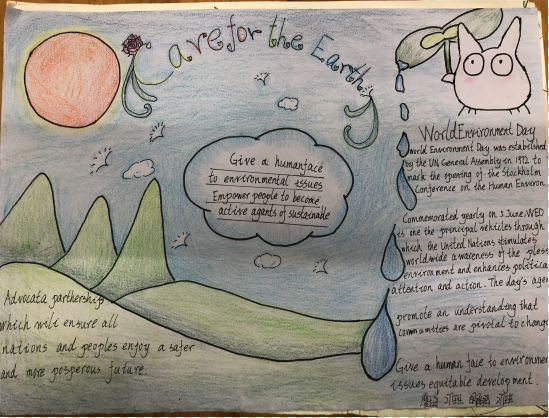 Care for the Earth
Give a human face
to environmental issues
Empower people to become
active agents of sustainable
World Environment Day
World Environment Day was established
by the UN General Assembly in 1972 to
mark the opening of the Stockholm
Conference on the Human Environ
Commemorated yearly on 5 June. WED
is one the principal vehicles through
which the United Nations stimulates
worldwide awareness of the
environment and enhances political
attention and action. The day's agen
promote an understanding that
communities are pivotal to change
Give a human face to environmen
issues equitable development.
Advocata parthership
which will ensure all
nations and peoples enjoy a safer
and more posperous future.